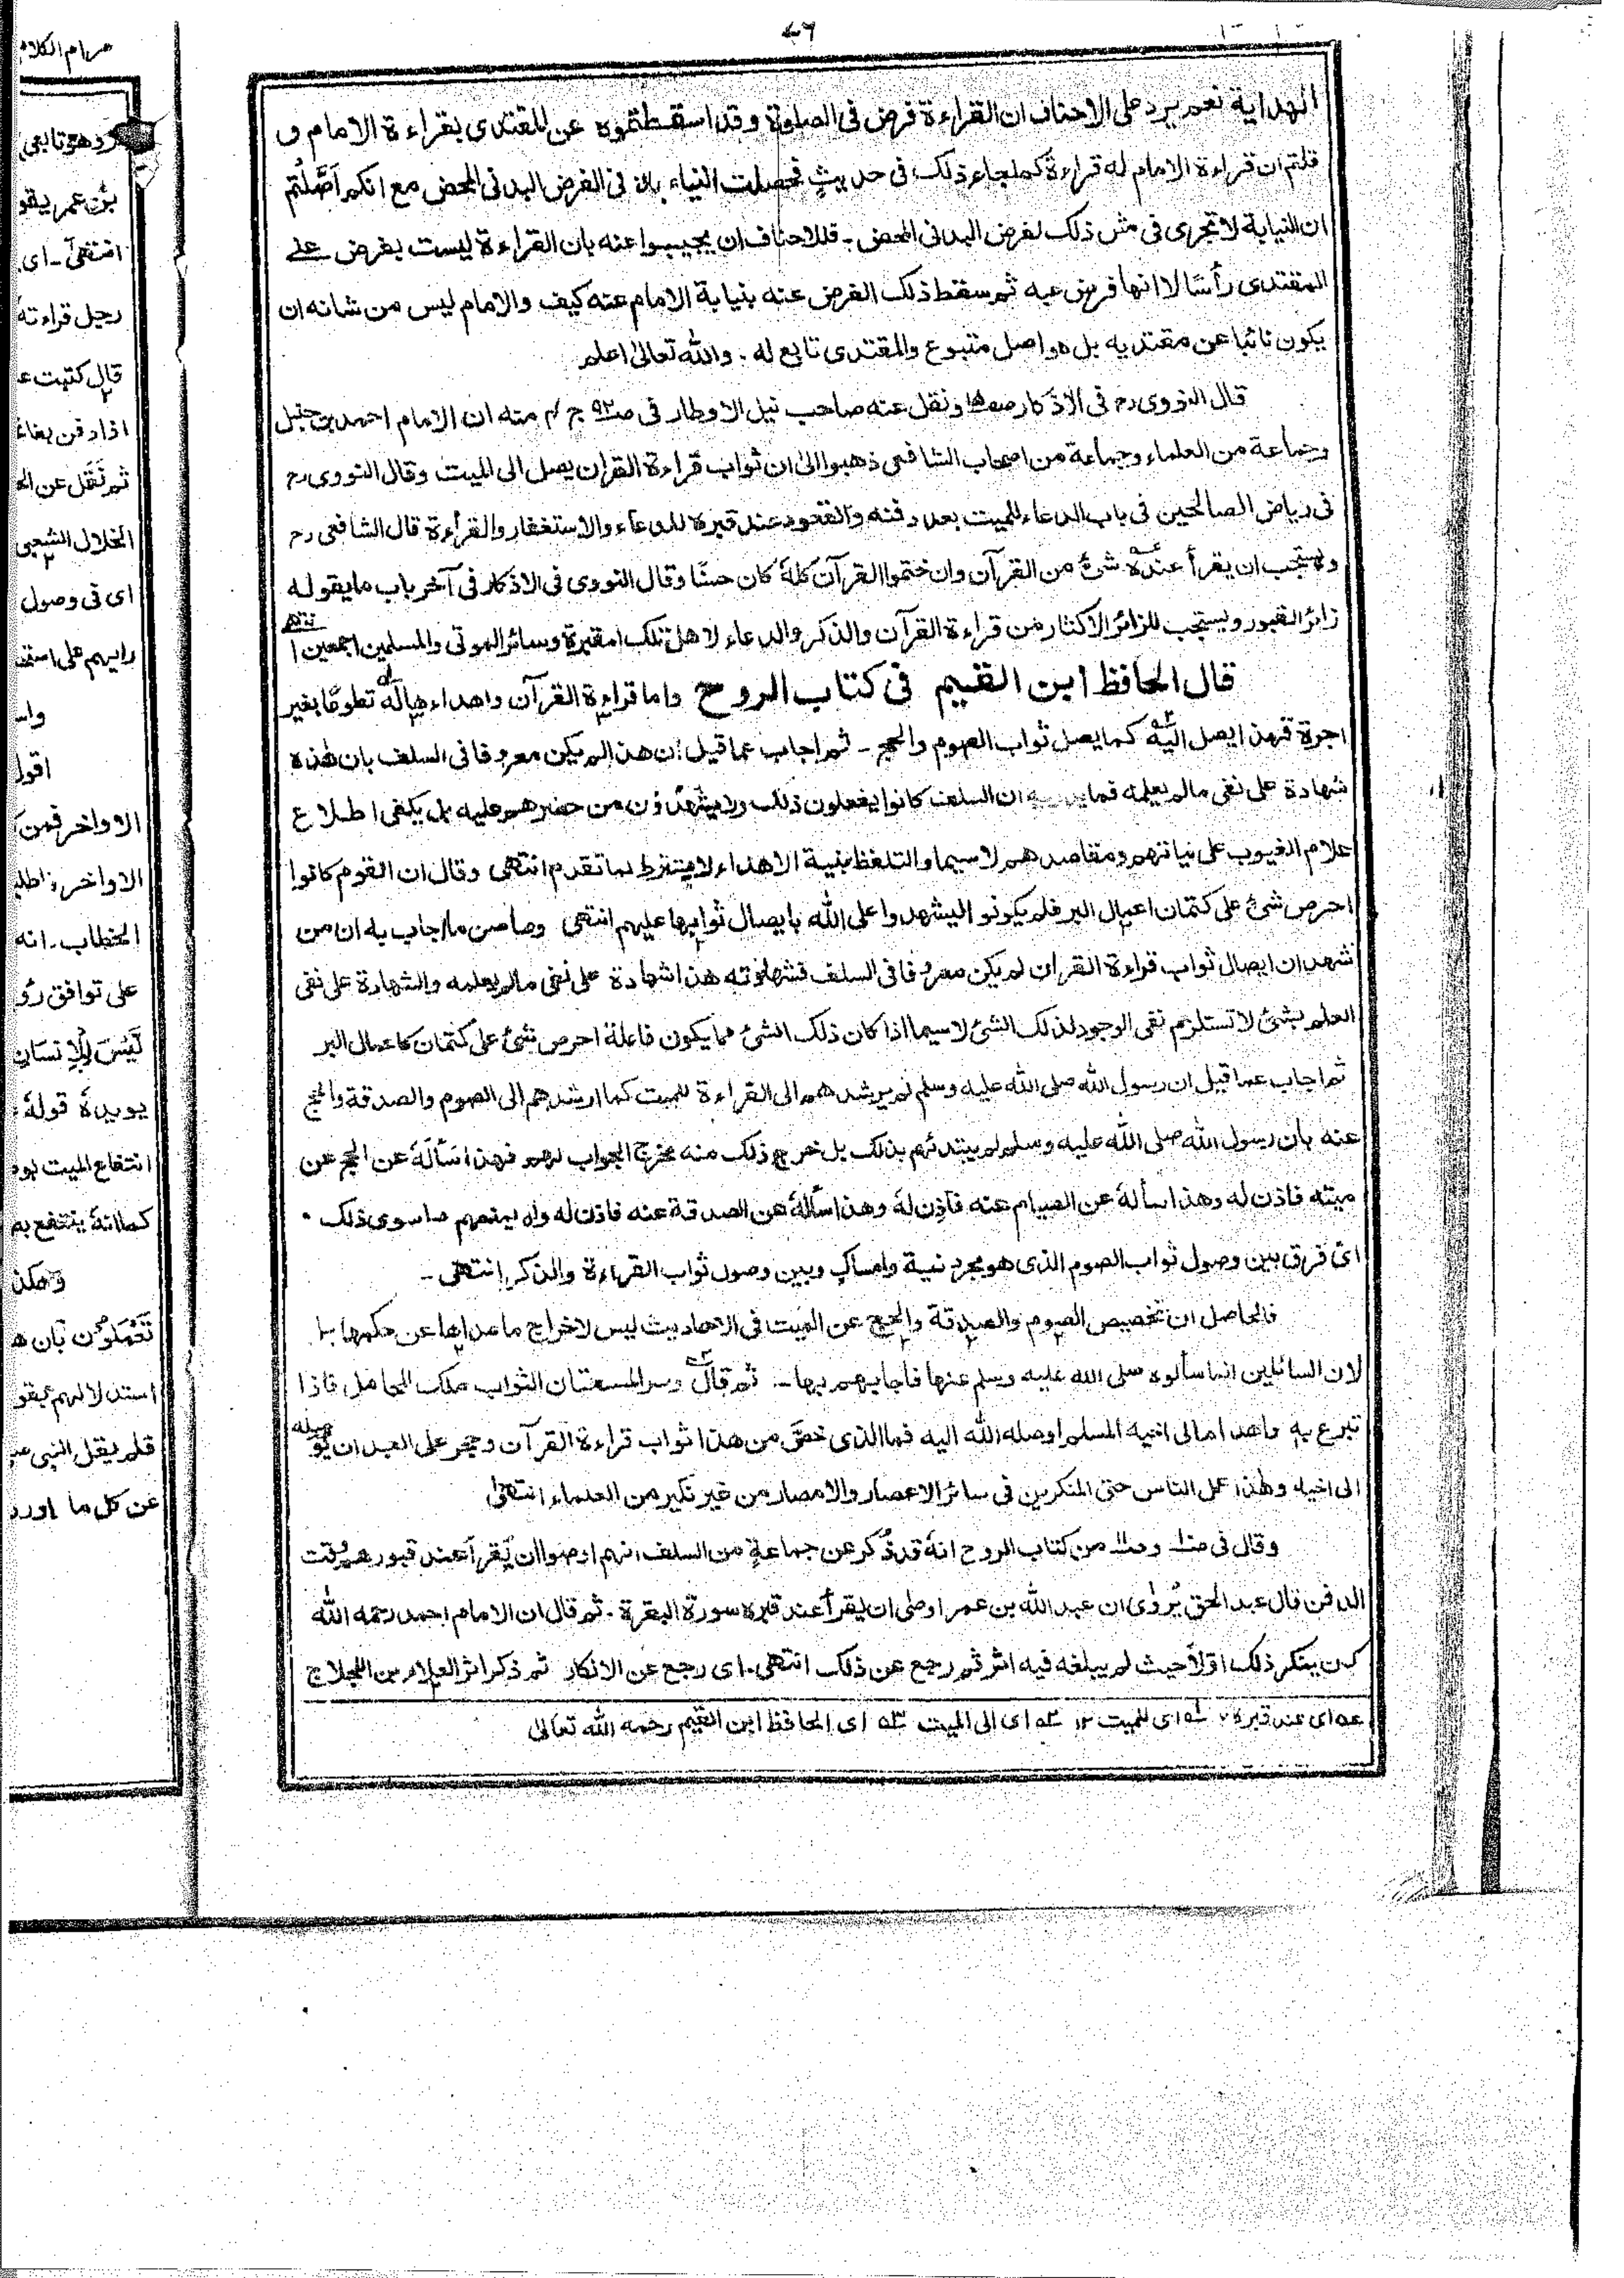 ٤٦
الهداية نعم يرد على الاحناف ان القراءة فرض فى الصلوة وقد اسقطتموه عن المقتدى بقراءة الامام و
قلتم ان قراءة الامام له قراءة كما جاء ذلك فى حديث فحصلت النياء بان فى الفرض البدنى المحض مع انكم اَصَّلْتُم
ان النيابة لا تجرى فى مثل ذلك لفرض البدنى المحض ۔ فللاحناف ان يجيبوا عنه بان القراءة ليست بفرض على
المقتدى رأسًا لا انها فرض عليه ثم سقط ذلك الفرض عنه بنيابة الامام عنه كيف والامام ليس من شانه ان
يكون نائبا عن مقتديه بل هو اصل متبوع والمقتدى تابع له ۔ والله تعالىٰ اعلم
قال النووى رح فى الاذكار ونقل عنه صاحب نيل الاوطار فى صـ٩٢ ج ٤ منه ان الامام احمد بن حنبل
وجماعة من العلماء وجماعة من اصحاب الشافعى ذهبوا الىٰ ان ثواب قراءة القران يصل الى الميت وقال النووى رح
فى رياض الصالحين فى باب الدعاء للميت بعد دفنه والقعود عند قبره للدعاء والاستغفار والقراءة قال الشافعى رح
ويستحب ان يقرأ عندهٗ شئ من القرآن وان ختموا القرآن كلهٗ كان حسنًا وقال النووى فى الاذكار فى آخر باب ما يقوله
زائر القبور ويستحب للزائر الاكثار من قراءة القرآن والذكر والدعاء لاهل تلك المقبرة وسائر الموتى والمسلمين اجمعين انتهى
قال الحافظ ابن القيم فى كتاب الروح واما قراءة القرآن واهداءها لهٗ تطوعًا بغير
اجرة فهذا يصل اليه كما يصل ثواب الصوم والحج ۔ ثم اجاب عما قيل ان هذا لم يكن معروفا فى السلف بان هٰذه
شهادة على نفى مالم يعلمه فما ان السلف كانوا يفعلون ذلك ولا يشهدون من حضرهم عليه بل يكفى اطلاع
علام الغيوب على نياتهم ومقاصدهم لا سيما والتلفظ بنية الاهداء لا يشترط لما تقدم انتهى وقال ان القوم كانوا
احرص شئ على كتمان اعمال البر فلم يكونوا ليشهدوا على الله بايصال ثوابها عليهم انتهى وحاصل ما اجاب به ان من
شهد ان ايصال ثواب قراءة القران لم يكن معروفا فى السلف فشهادته هذا شهادة على نفى مالم يعلمه والشهادة على نفى
العلم بشئ لا تستلزم نفى الوجود لذلك الشئ لا سيما اذا كان ذلك الشئ مما يكون فاعلهٗ احرص شئ على كتمان كاعمال البر
ثم اجاب عما قيل ان رسول الله صلى الله عليه وسلم لم يرشدهم الى القراءة للميت كما ارشدهم الى الصوم والصدقة والحج
عنه بان رسول الله صلى الله عليه وسلم لم يبتدئهم بذلك بل خرج ذلك منه مخرج الجواب لهم فهذا سألهٗ عن الحج عن
ميته فاذن له وهذا سألهٗ عن الصيام عنه فاذن لهٗ وهذا سألهٗ عن الصدقة عنه فاذن له ولم يمنعهم ما سوى ذلك ۔
اىّ فرق بين وصول ثواب الصوم الذى هو مجرد نية وامساكٍ وبين وصول ثواب القراءة والذكر انتهى ۔
فالحاصل ان تخصيص الصوم والصدقة والحج عن الميت فى الاحاديث ليس لاخراج ماعداها عن حكمها بل
لان السائلين انما سألوه صلى الله عليه وسلم عنها فاجابهم بها ۔ ثم قال وسر المسئلة ان الثواب ملك العامل فاذا
تبرع به واهداه الى اخيه المسلم اوصله الله اليه فما الذى خص من هذا ثواب قراءة القرآن وحجر على العبد ان يوصله
الى اخيه وهٰذا عمل الناس حتى المنكرين فى سائر الاعصار والامصار من غير نكير من العلماء انتهى
وقال فى من كتاب الروح انهٗ قد ذُكر عن جماعةٍ من السلف انهم اوصوا ان يُقرأ عند قبورهم وقت
الدفن قال عبد الحق يُروٰى ان عبد الله بن عمر اوصىٰ ان يقرأ عند قبره سورة البقرة ۔ ثم قال ان الامام احمد رحمه الله
كان ينكر ذلك اوّلاً حيث لم يبلغه فيه اثر ثم رجع عن ذلك انتهى ۔ اى رجع عن الانكار ثم ذكر اثر العلاء بن اللجلاج
عـه اى عند قبره ١٢ اى للميت ١٢ اى الى الميت اى الحافظ ابن القيم رحمه الله تعالى
مرام الكلا
وهو تابعى
بن عمر يقو
انتهىٰ ۔ اى
رجل قراءته
قال كتبت ع
اذا دفن بفاتـ
ثم نَقَل عن الـ
الخلال الشعبى
اى فى وصول
رايهم على استـ
واـ
اقول
الاواخر فمن
الاواخر
الخطاب ۔ انه
على توافق رؤ
لَيْسَ لِلْاِنْسَانِ
يويدهٗ قولهٗ
انتفاع الميت بو
كما انهٗ ينتفع به
وهكذ
تَعْمَلُوْنَ بان هـ
استدلالهم بقو
فلم يقل النبى
عن كل ما اورد